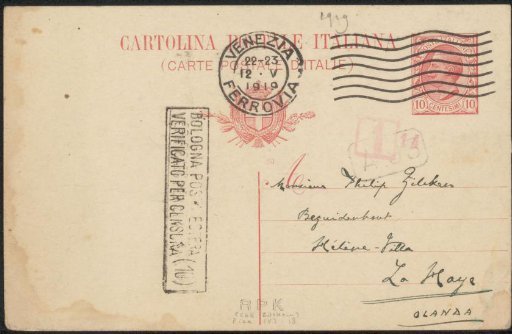 1919
CARTOLINA POSTALE ITALIANA
(CARTE POSTALE D'ITALIE)
VENEZIA
22-23
12 · V
1919
FERROVIA
10 CENTESIMI 10
T
BOLOGNA POSTA ESTERA
VERIFICATO PER CENSURA (10)
Monsieur Philip Zilcken
Bezuidenhout
Hélène-Villa
La Haye
OLANDA
RPK